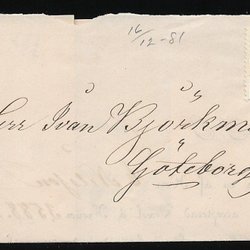 16/12-81
Herr Ivan Björkm
Göteborg